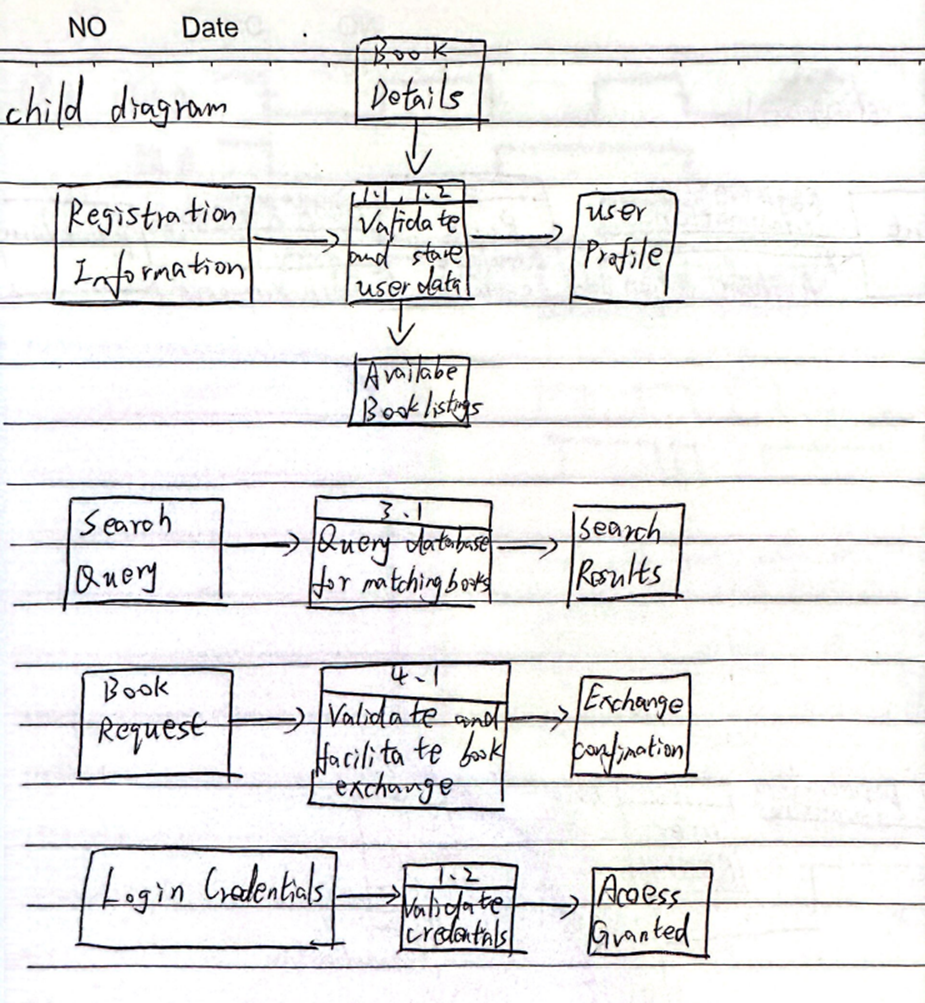 NO Date .
Book
Details
child diagram
Registration
Information
1.1, 1.2
Validate
and store
user data
user
Profile
Availabe
Book listings
Search
Query
3.1
Query database
for matching books
Search
Results
Book
Request
4.1
Validate and
facilitate book
exchange
Exchange
confimation
Login Credentials
1.2
Validate
credentials
Access
Granted